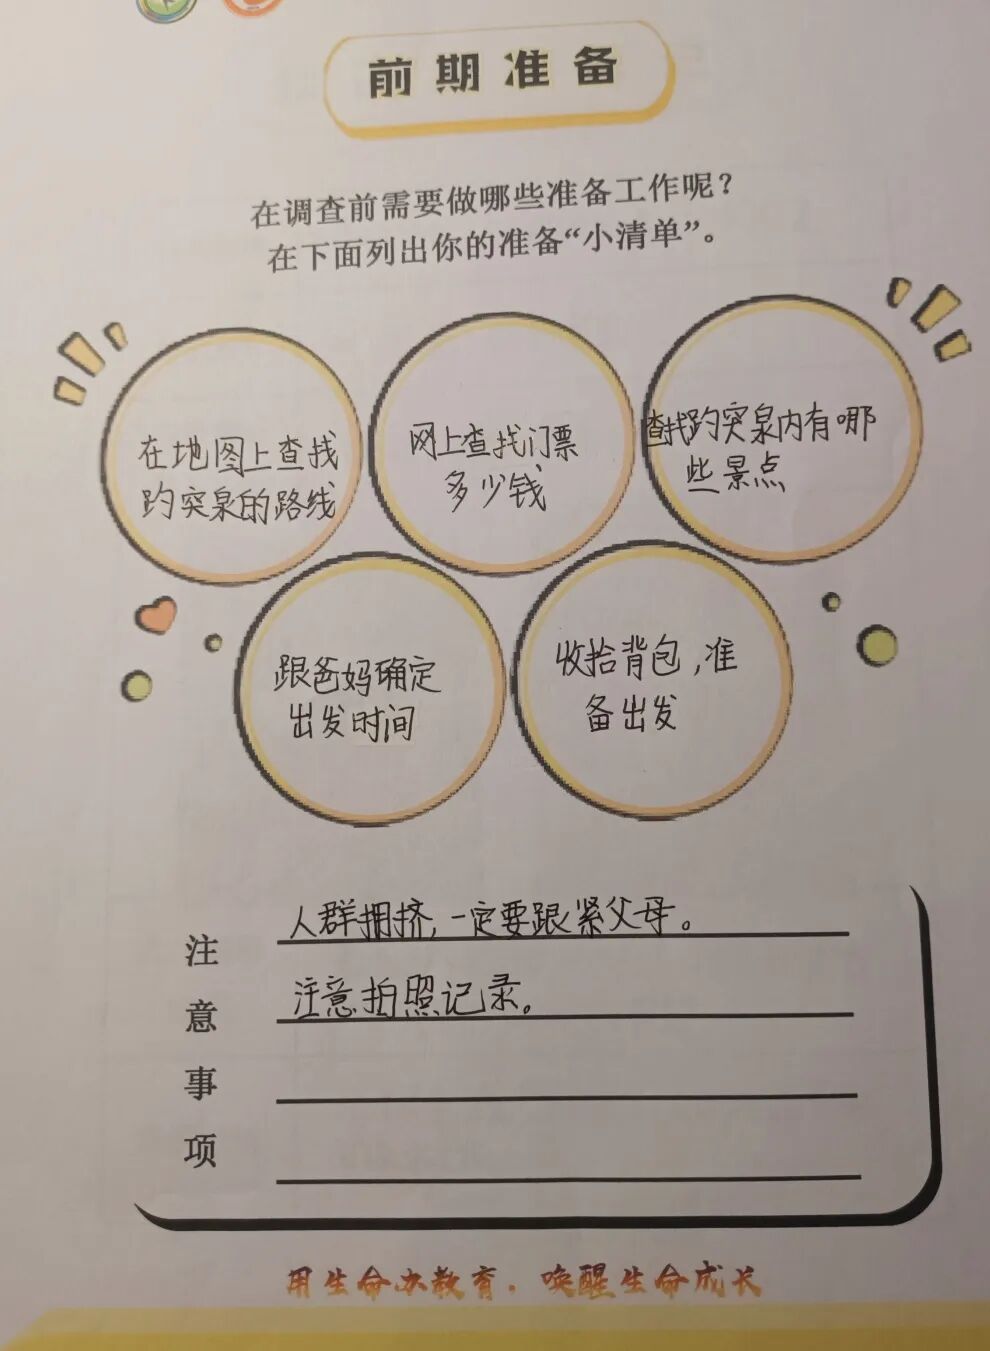 前期准备
在调查前需要做哪些准备工作呢？
在下面列出你的准备“小清单”。
在地图上查找
趵突泉的路线
网上查找门票
多少钱
查找趵突泉内有哪
些景点
跟爸妈确定
出发时间
收拾背包，准
备出发
注意事项
人群拥挤，一定要跟紧父母。
注意拍照记录。
用生命办教育，唤醒生命成长